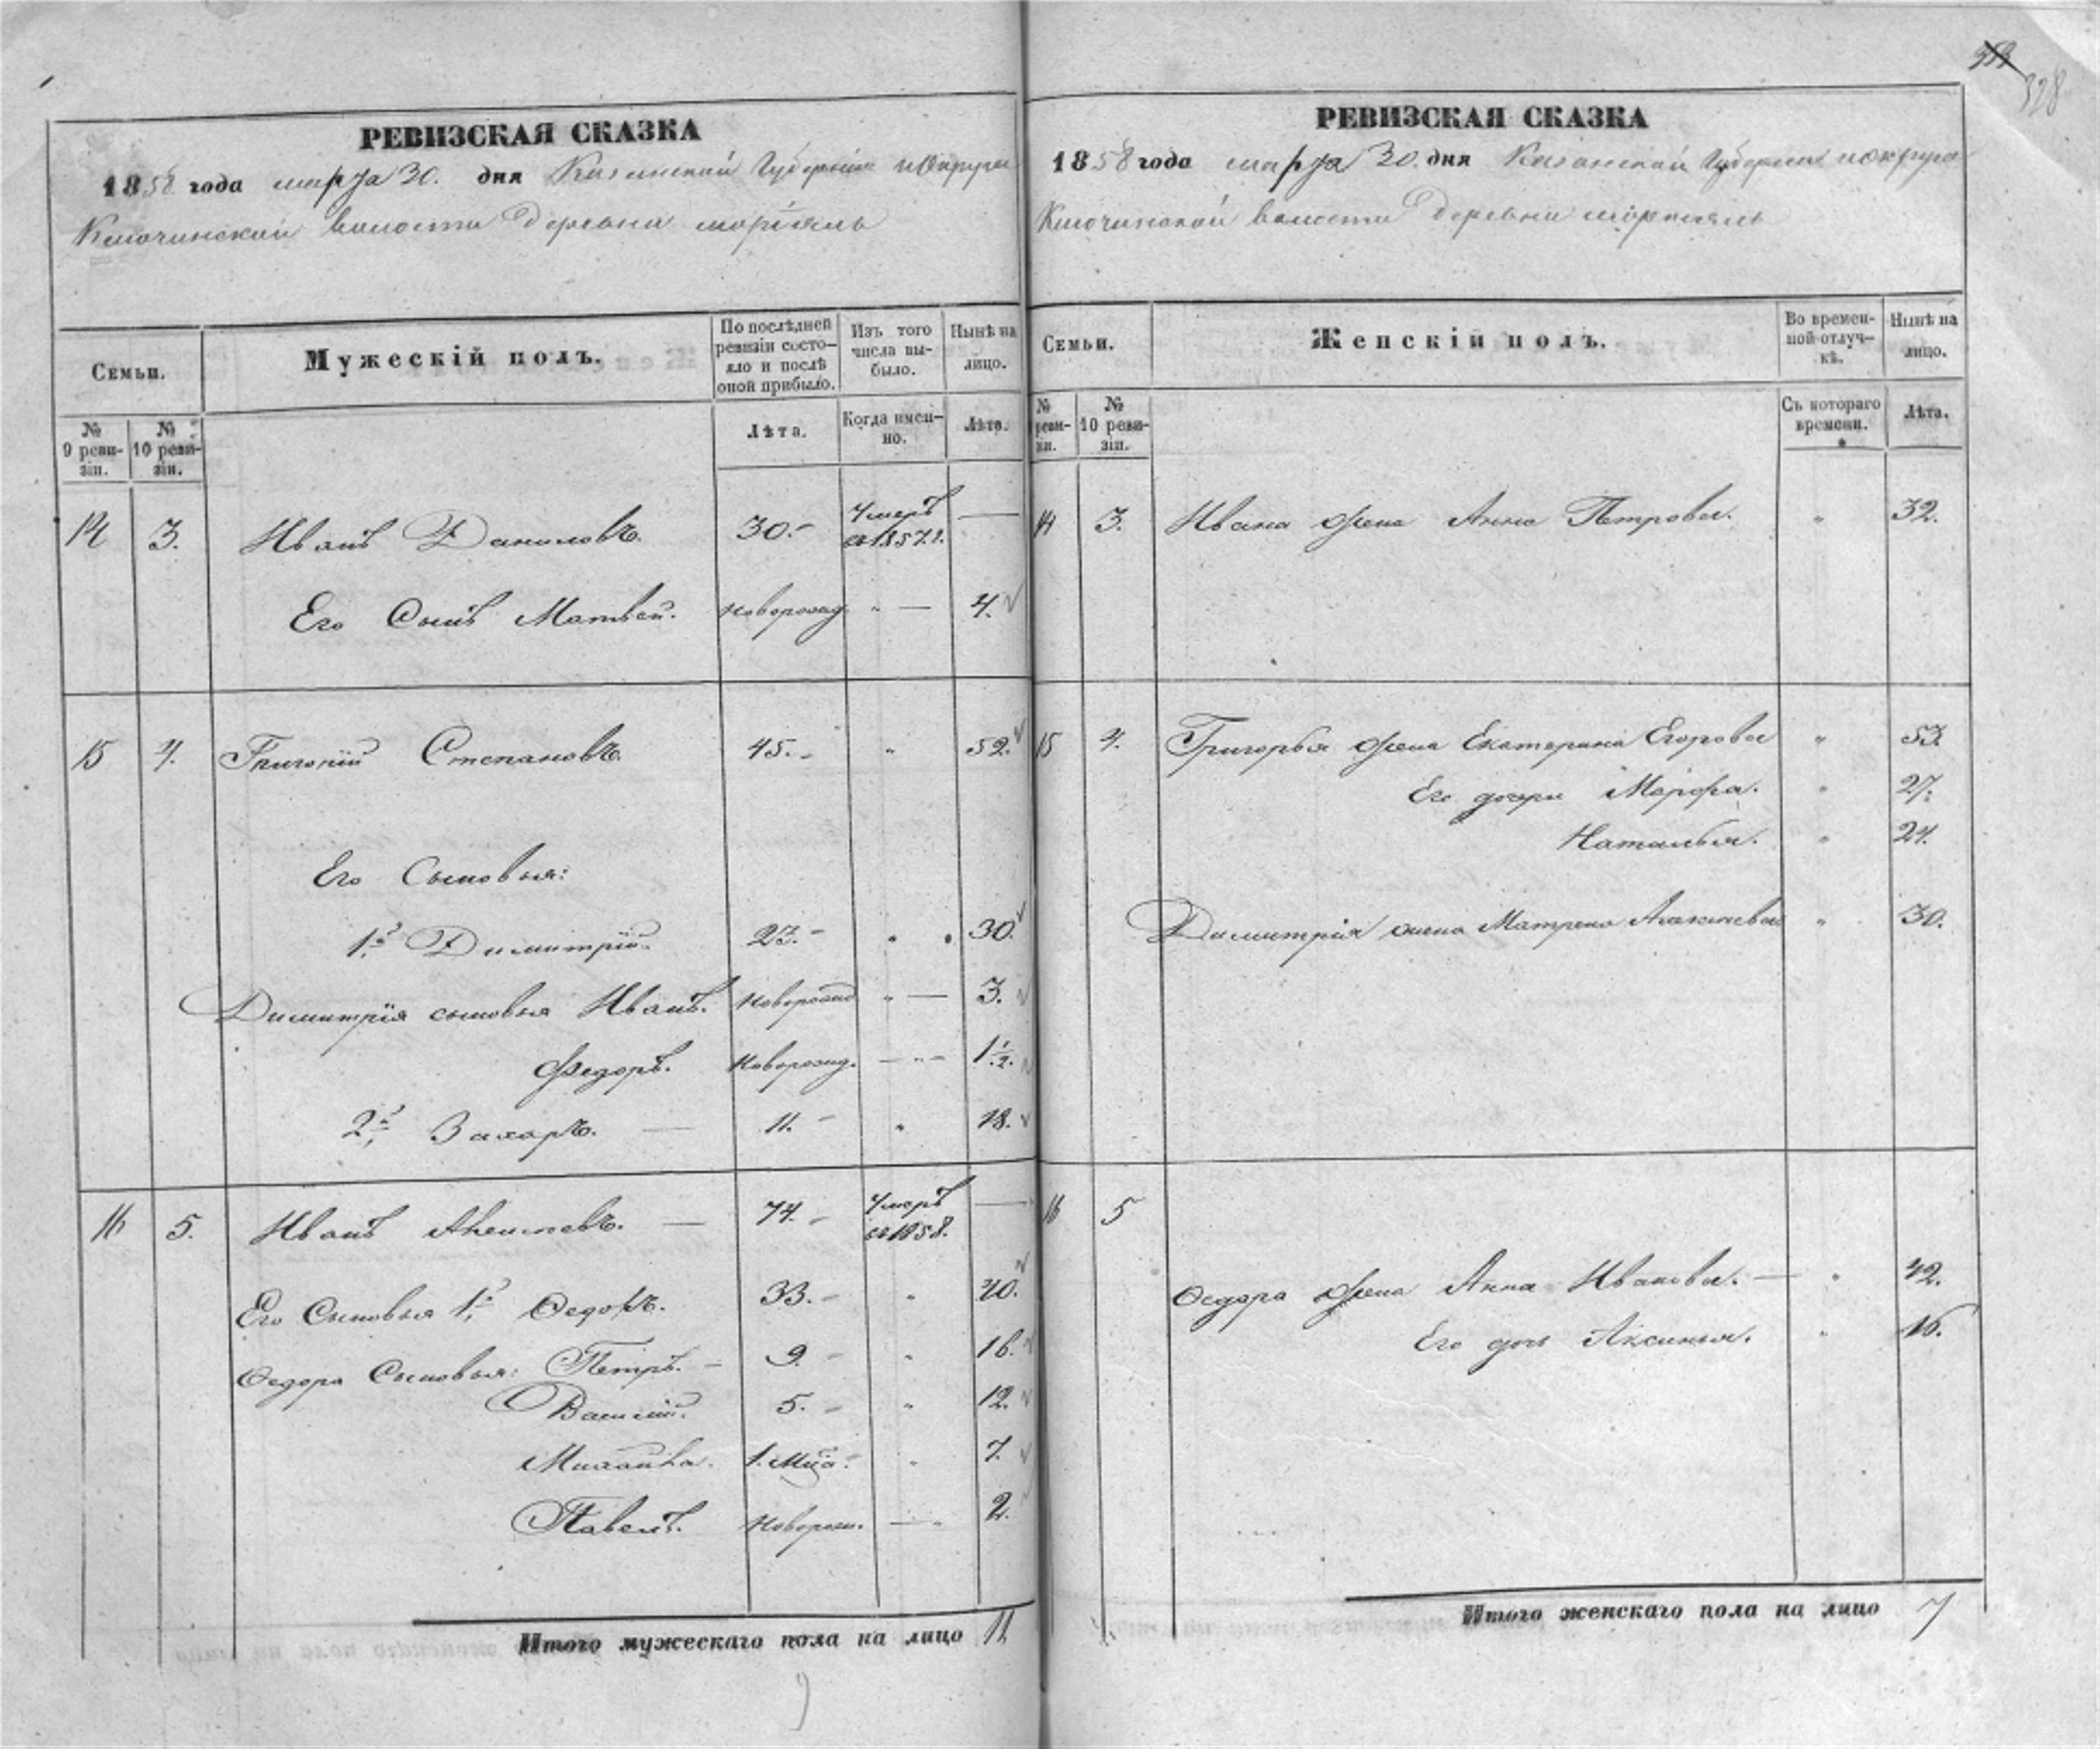 328
РЕВИЗСКАЯ СКАЗКА
1858 года марта 30. дня Казанской Губернии и Округи
Ключинской волости деревни
Семьи.
Мужескій полъ.
По послѣдней ревизіи состояло и послѣ оной прибыло.
Изъ того числа выбыло.
Нынѣ на лицо.
№ 9 ревизіи.
№ 10 ревизіи.
Лѣта.
Когда именно.
Лѣта.
14 3. Иванъ Даниловъ. 30.- Умеръ въ 1857.г. —
Его Сынъ Матвей. Новорожд. " — 4.
15 4. Григорій Степановъ. 45.- " 52.
Его Сыновья:
1й Димитрій. 23.- " 30.
Димитрія сыновья Иванъ. Новорожд " — 3.
Федоръ. Новорожд. — " — 1 1/2.
2й Захаръ. — 11.- " 18.
16 5. Иванъ — 74.- Умеръ въ 1858. —
Его Сыновья 1й Федоръ. 33.- " 40.
Федора Сыновья: Петръ. - 9.- " 16.
Василій. 5.- " 12.
Михайла. 1. Мца.- " 7.
Павелъ. Новорож. — " 2.
Итого мужескаго пола на лицо 11
РЕВИЗСКАЯ СКАЗКА
1858 года марта 30. дня Казанской Губернии и округи
Ключинской волости деревни
Семьи.
Женскій полъ.
Во временной отлучкѣ.
Нынѣ на лицо.
№ ревизіи.
№ 10 ревизіи.
Съ котораго времени.
Лѣта.
14 3. Ивана жена Анна Петрова. " 32.
15 4. Григорья жена Екатерина Егорова " 53.
Его дочери Марфа. " 27.
Наталья. " 24.
Димитрія жена Матрена " 30.
16 5
Федора жена Анна Иванова. — " 42.
Его дочь Аксинья. " 16.
Итого женскаго пола на лицо 7